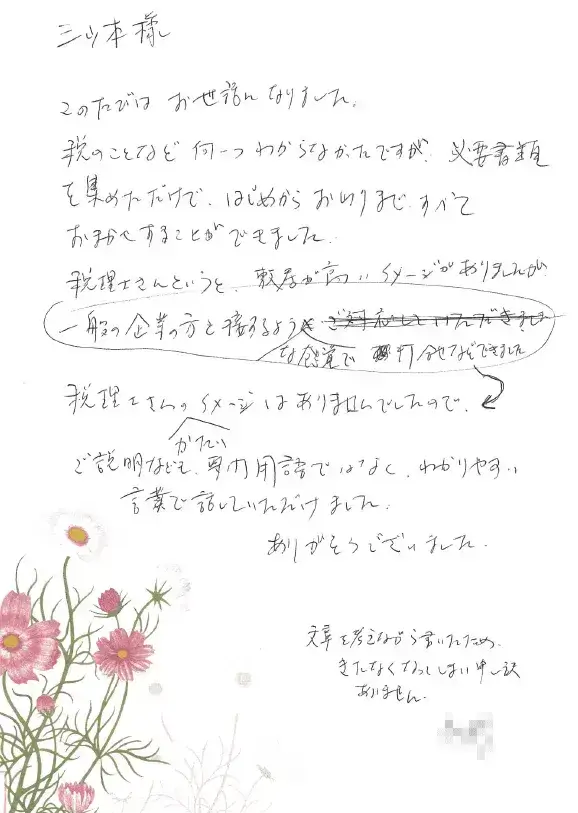 三山本様
このたびは お世話になりました。
税のことなど 何一つ わからなかたですが、必要書類
を集めただけで、はじめから おわりまで、すべて
おまかせすることができました。
税理士さんというと、敷居が高いイメージがありましたが
一般の企業の方と接するよう
な感覚で 打合せなどできました
税理士さんのイメージはありませんでしたので、
かたい
ご説明なども、専門用語ではなく、わかりやすい
言葉で話していただけました。
ありがとうございました。
文章を考えながら書いたため、
きたなくなってしまい申し訳
ありません。